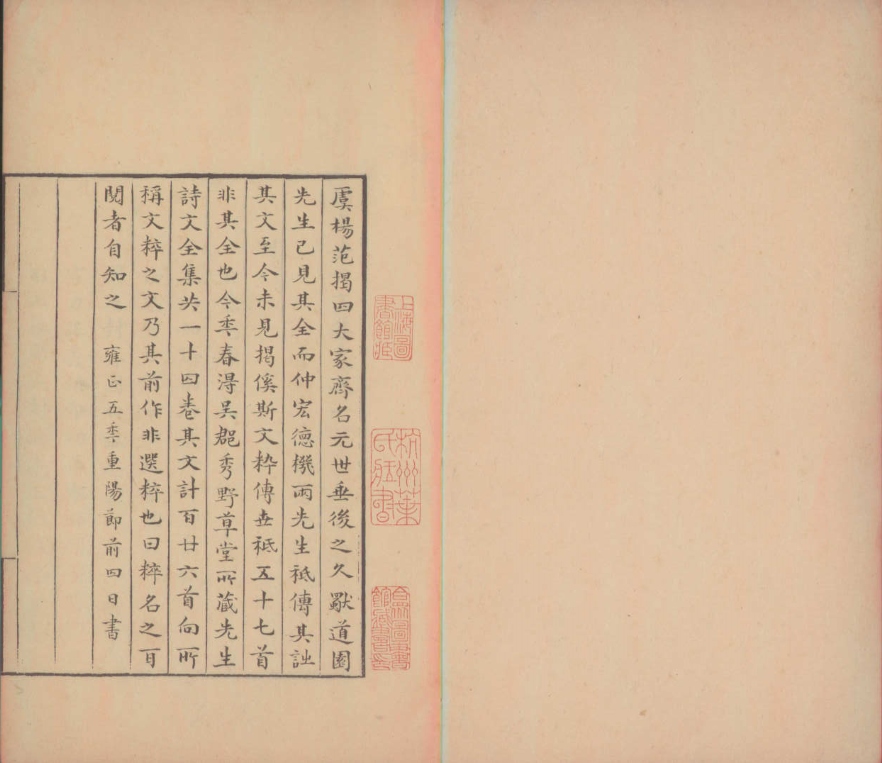 虞楊范揭四大家齊名元世垂後之久獸道園
先生已見其全而仲宏德機兩先生祗傳其詘
其文至今未見揭傒斯文粹傳世祗五十七首
非其全也今秊春淂吴郡秀野草堂所藏先生
詩文全集共一十四卷其文計百廿六首向所
稱文粹之文乃其前作非選粹也曰粹名之百
閱者自知之 雍正五秊重陽節前四日書
上海圖
書館藏
杭州葉
氏藏書
合眾圖書
館藏書印